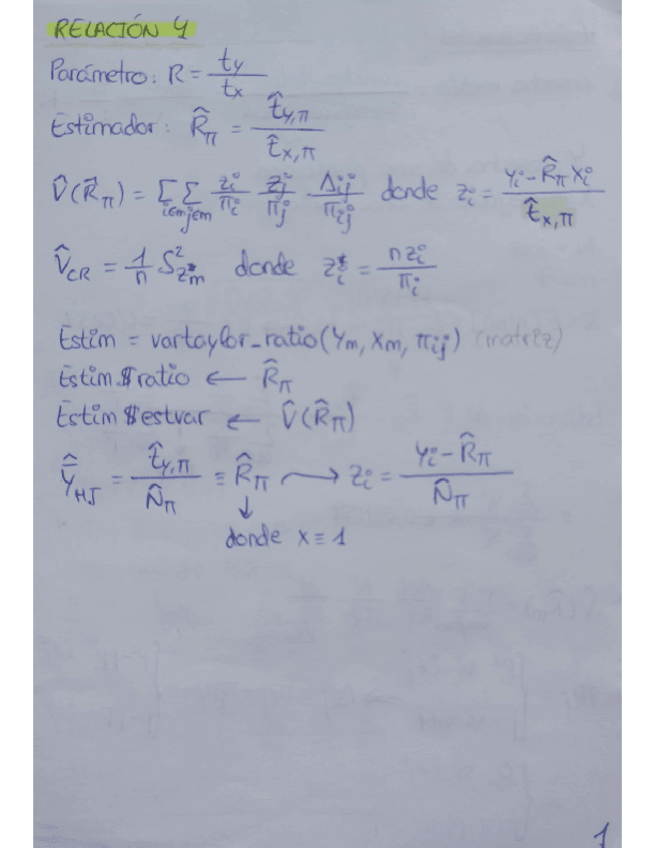 RELACIÓN 4
Parámetro: R = t_y / t_x
Estimador: R̂_π = t̂_{y,π} / t̂_{x,π}
V̂(R̂_π) = Σ_{i∈m} Σ_{j∈m} z_i/π_i z_j/π_j Δ_ij/π_ij donde z_i = (y_i - R̂_π x_i) / t̂_{x,π}
V̂_CR = 1/n S²_{z*_m} donde z*_i = n z_i / π_i
Estim = vartaylor_ratio(Y_m, X_m, π_ij) (matriz)
Estim$ratio ← R̂_π
Estim$estvar ← V̂(R̂_π)
Ȳ̂_HJ = t̂_{y,π} / N̂_π ≡ R̂_π → z_i = (y_i - R̂_π) / N̂_π
↓
donde x ≡ 1
1